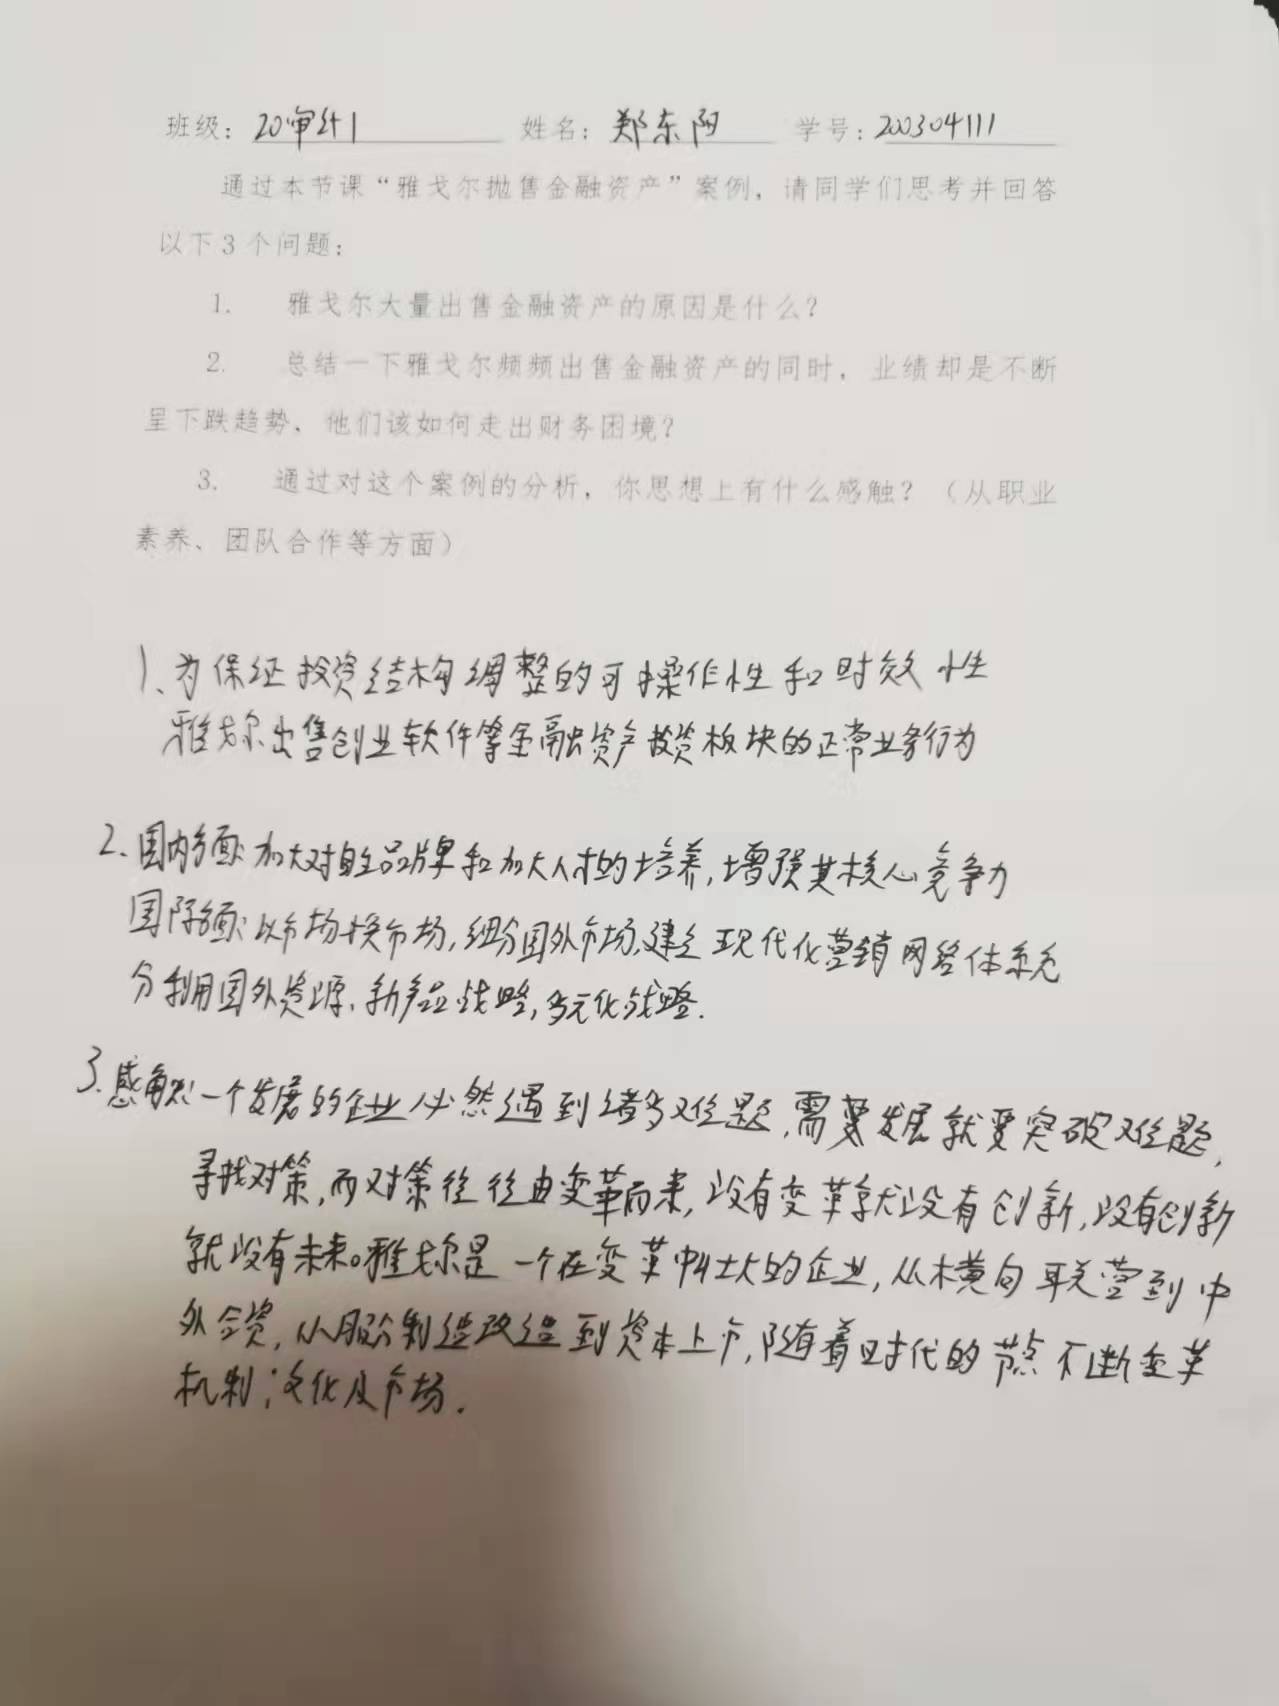 班级：20审计1 姓名：郑东阳 学号：200304111
通过本节课“雅戈尔抛售金融资产”案例，请同学们思考并回答
以下3个问题：
1. 雅戈尔大量出售金融资产的原因是什么？
2. 总结一下雅戈尔频频出售金融资产的同时，业绩却是不断
呈下跌趋势、他们该如何走出财务困境？
3. 通过对这个案例的分析，你思想上有什么感触？（从职业
素养、团队合作等方面）
1、为保证投资结构调整的可操作性和时效性
雅戈尔出售创业软件等金融资产投资板块的正常业务行为
2、国内方面：加大对自主品牌和加大人才的培养，增强其核心竞争力
国际方面：以市场换市场，细分国外市场、建立现代化营销网络体系充
分利用国外资源、新产品战略，多元化战略.
3.感触：一个发展的企业必然遇到诸多难题，需要发展就要突破难题，
寻找对策，而对策往往由变革而来，没有变革就没有创新，没有创新
就没有未来。雅戈尔是一个在变革中壮大的企业，从横向联营到中
外合资，从股份制造改造到资本上市，随着时代的节点不断变革
机制；文化及市场.